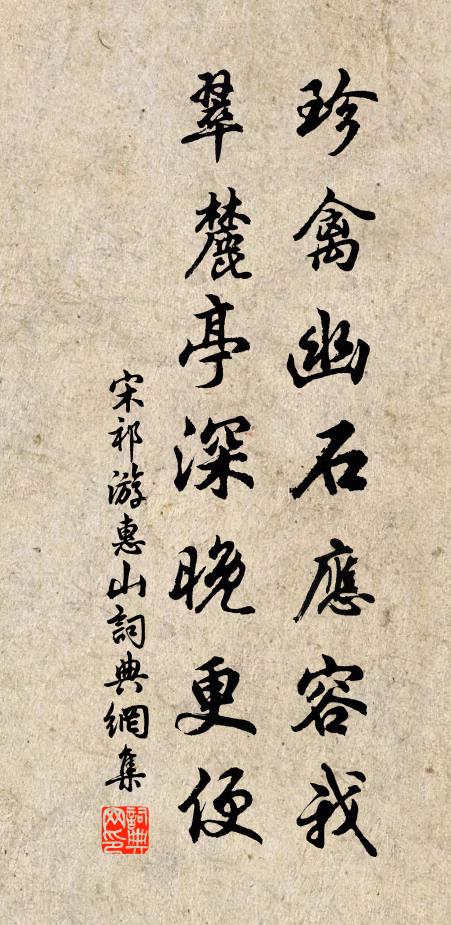 珍禽幽石應容我
翠麓亭深晚更便
宋祁游惠山詞典網集
詞典网印